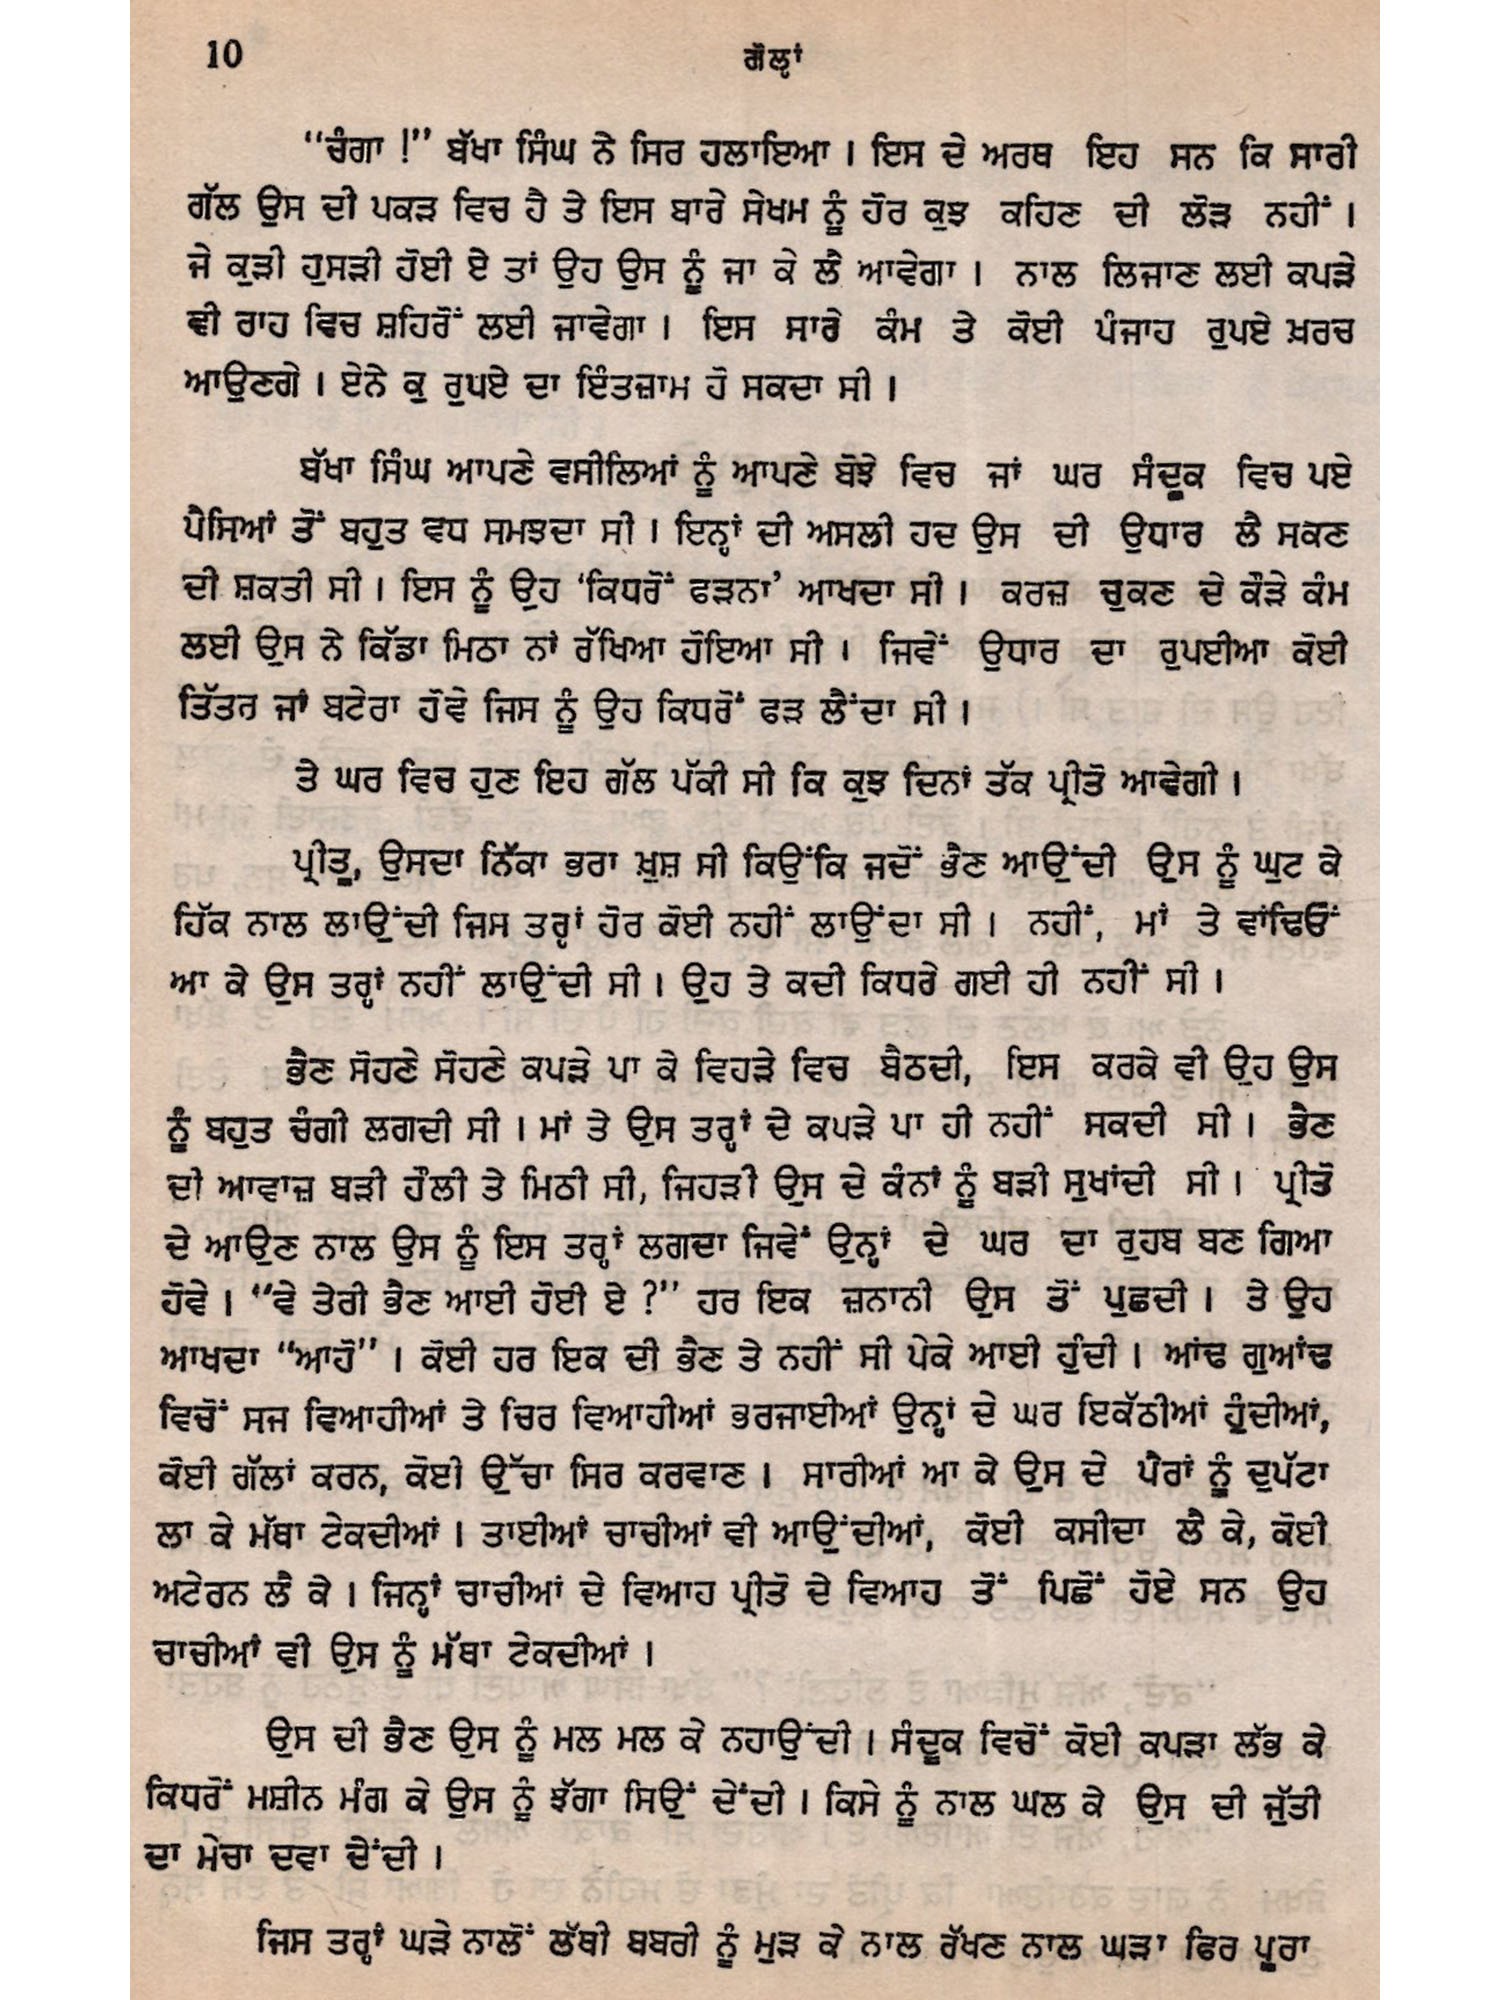 10
ਗੌਲ੍ਹਾਂ
“ਚੰਗਾ !” ਬੱਖਾ ਸਿੰਘ ਨੇ ਸਿਰ ਹਲਾਇਆ । ਇਸ ਦੇ ਅਰਥ ਇਹ ਸਨ ਕਿ ਸਾਰੀ
ਗੱਲ ਉਸ ਦੀ ਪਕੜ ਵਿਚ ਹੈ ਤੇ ਇਸ ਬਾਰੇ ਸੇਖਮ ਨੂੰ ਹੋਰ ਕੁਝ ਕਹਿਣ ਦੀ ਲੋੜ ਨਹੀਂ ।
ਜੇ ਕੁੜੀ ਹੁਸੜੀ ਹੋਈ ਏ ਤਾਂ ਉਹ ਉਸ ਨੂੰ ਜਾ ਕੇ ਲੈ ਆਵੇਗਾ । ਨਾਲ ਲਿਜਾਣ ਲਈ ਕਪੜੇ
ਵੀ ਰਾਹ ਵਿਚ ਸ਼ਹਿਰੋਂ ਲਈ ਜਾਵੇਗਾ । ਇਸ ਸਾਰੇ ਕੰਮ ਤੇ ਕੋਈ ਪੰਜਾਹ ਰੁਪਏ ਖ਼ਰਚ
ਆਉਣਗੇ । ਏਨੇ ਕੁ ਰੁਪਏ ਦਾ ਇੰਤਜ਼ਾਮ ਹੋ ਸਕਦਾ ਸੀ ।
ਬੱਖਾ ਸਿੰਘ ਆਪਣੇ ਵਸੀਲਿਆਂ ਨੂੰ ਆਪਣੇ ਬੋਝੇ ਵਿਚ ਜਾਂ ਘਰ ਸੰਦੂਕ ਵਿਚ ਪਏ
ਪੈਸਿਆਂ ਤੋਂ ਬਹੁਤ ਵਧ ਸਮਝਦਾ ਸੀ । ਇਨ੍ਹਾਂ ਦੀ ਅਸਲੀ ਹਦ ਉਸ ਦੀ ਉਧਾਰ ਲੈ ਸਕਣ
ਦੀ ਸ਼ਕਤੀ ਸੀ । ਇਸ ਨੂੰ ਉਹ ‘ਕਿਧਰੋਂ ਫੜਨਾ’ ਆਖਦਾ ਸੀ । ਕਰਜ਼ ਚੁਕਣ ਦੇ ਕੌੜੇ ਕੰਮ
ਲਈ ਉਸ ਨੇ ਕਿੱਡਾ ਮਿਠਾ ਨਾਂ ਰੱਖਿਆ ਹੋਇਆ ਸੀ । ਜਿਵੇਂ ਉਧਾਰ ਦਾ ਰੁਪਈਆ ਕੋਈ
ਤਿੱਤਰ ਜਾਂ ਬਟੇਰਾ ਹੋਵੇ ਜਿਸ ਨੂੰ ਉਹ ਕਿਧਰੋਂ ਫੜ ਲੈਂਦਾ ਸੀ ।
ਤੇ ਘਰ ਵਿਚ ਹੁਣ ਇਹ ਗੱਲ ਪੱਕੀ ਸੀ ਕਿ ਕੁਝ ਦਿਨਾਂ ਤੱਕ ਪ੍ਰੀਤੋ ਆਵੇਗੀ ।
ਪ੍ਰੀਤੂ, ਉਸਦਾ ਨਿੱਕਾ ਭਰਾ ਖ਼ੁਸ਼ ਸੀ ਕਿਉਂਕਿ ਜਦੋਂ ਭੈਣ ਆਉਂਦੀ ਉਸ ਨੂੰ ਘੁਟ ਕੇ
ਹਿੱਕ ਨਾਲ ਲਾਉਂਦੀ ਜਿਸ ਤਰ੍ਹਾਂ ਹੋਰ ਕੋਈ ਨਹੀਂ ਲਾਉਂਦਾ ਸੀ । ਨਹੀਂ, ਮਾਂ ਤੇ ਵਾਂਢਿਓਂ
ਆ ਕੇ ਉਸ ਤਰ੍ਹਾਂ ਨਹੀਂ ਲਾਉਂਦੀ ਸੀ । ਉਹ ਤੇ ਕਦੀ ਕਿਧਰੇ ਗਈ ਹੀ ਨਹੀਂ ਸੀ ।
ਭੈਣ ਸੋਹਣੇ ਸੋਹਣੇ ਕਪੜੇ ਪਾ ਕੇ ਵਿਹੜੇ ਵਿਚ ਬੈਠਦੀ, ਇਸ ਕਰਕੇ ਵੀ ਉਹ ਉਸ
ਨੂੰ ਬਹੁਤ ਚੰਗੀ ਲਗਦੀ ਸੀ । ਮਾਂ ਤੇ ਉਸ ਤਰ੍ਹਾਂ ਦੇ ਕਪੜੇ ਪਾ ਹੀ ਨਹੀਂ ਸਕਦੀ ਸੀ । ਭੈਣ
ਦੀ ਆਵਾਜ਼ ਬੜੀ ਹੌਲੀ ਤੇ ਮਿਠੀ ਸੀ, ਜਿਹੜੀ ਉਸ ਦੇ ਕੰਨਾਂ ਨੂੰ ਬੜੀ ਸੁਖਾਂਦੀ ਸੀ । ਪ੍ਰੀਤੋ
ਦੇ ਆਉਣ ਨਾਲ ਉਸ ਨੂੰ ਇਸ ਤਰ੍ਹਾਂ ਲਗਦਾ ਜਿਵੇਂ ਉਨ੍ਹਾਂ ਦੇ ਘਰ ਦਾ ਰੁਹਬ ਬਣ ਗਿਆ
ਹੋਵੇ । “ਵੇ ਤੇਰੀ ਭੈਣ ਆਈ ਹੋਈ ਏ ?” ਹਰ ਇਕ ਜ਼ਨਾਨੀ ਉਸ ਤੋਂ ਪੁਛਦੀ । ਤੇ ਉਹ
ਆਖਦਾ “ਆਹੋ” । ਕੋਈ ਹਰ ਇਕ ਦੀ ਭੈਣ ਤੇ ਨਹੀਂ ਸੀ ਪੇਕੇ ਆਈ ਹੁੰਦੀ । ਆਂਢ ਗੁਆਂਢ
ਵਿਚੋਂ ਸਜ ਵਿਆਹੀਆਂ ਤੇ ਚਿਰ ਵਿਆਹੀਆਂ ਭਰਜਾਈਆਂ ਉਨ੍ਹਾਂ ਦੇ ਘਰ ਇਕੱਠੀਆਂ ਹੁੰਦੀਆਂ,
ਕੋਈ ਗੱਲਾਂ ਕਰਨ, ਕੋਈ ਉੱਚਾ ਸਿਰ ਕਰਵਾਣ । ਸਾਰੀਆਂ ਆ ਕੇ ਉਸ ਦੇ ਪੈਰਾਂ ਨੂੰ ਦੁਪੱਟਾ
ਲਾ ਕੇ ਮੱਥਾ ਟੇਕਦੀਆਂ । ਤਾਈਆਂ ਚਾਚੀਆਂ ਵੀ ਆਉਂਦੀਆਂ, ਕੋਈ ਕਸੀਦਾ ਲੈ ਕੇ, ਕੋਈ
ਅਟੇਰਨ ਲੈ ਕੇ । ਜਿਨ੍ਹਾਂ ਚਾਚੀਆਂ ਦੇ ਵਿਆਹ ਪ੍ਰੀਤੋ ਦੇ ਵਿਆਹ ਤੋਂ ਪਿਛੋਂ ਹੋਏ ਸਨ ਉਹ
ਚਾਚੀਆਂ ਵੀ ਉਸ ਨੂੰ ਮੱਥਾ ਟੇਕਦੀਆਂ ।
ਉਸ ਦੀ ਭੈਣ ਉਸ ਨੂੰ ਮਲ ਮਲ ਕੇ ਨਹਾਉਂਦੀ । ਸੰਦੂਕ ਵਿਚੋਂ ਕੋਈ ਕਪੜਾ ਲੱਭ ਕੇ
ਕਿਧਰੋਂ ਮਸ਼ੀਨ ਮੰਗ ਕੇ ਉਸ ਨੂੰ ਝੱਗਾ ਸਿਉਂ ਦੇਂਦੀ । ਕਿਸੇ ਨੂੰ ਨਾਲ ਘਲ ਕੇ ਉਸ ਦੀ ਜੁੱਤੀ
ਦਾ ਮੇਚਾ ਦਵਾ ਦੈਂਦੀ ।
ਜਿਸ ਤਰ੍ਹਾਂ ਘੜੇ ਨਾਲੋਂ ਲੱਥੀ ਬਬਰੀ ਨੂੰ ਮੁੜ ਕੇ ਨਾਲ ਰੱਖਣ ਨਾਲ ਘੜਾ ਫਿਰ ਪੂਰਾ